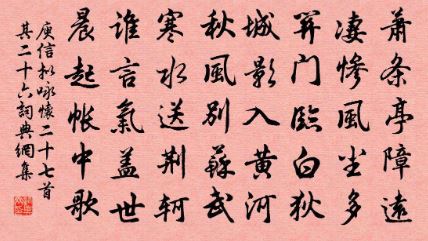 萧条亭障远
凄惨风尘多
关门临白狄
城影入黄河
秋风别苏武
寒水送荆轲
谁言气盖世
晨起帐中歌
庾信拟咏怀二十七首
其二十六词典网集